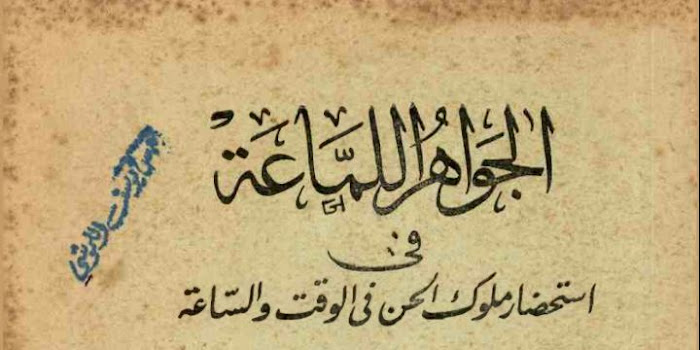 الجَوَاهِرُ اللمَّاعَة
فى
استحضار ملوك الجن فى الوقت والسّاعة